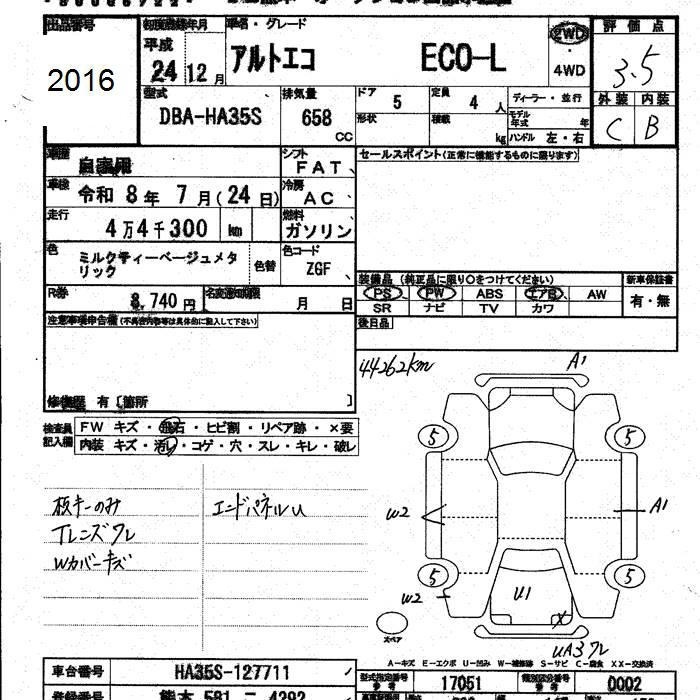 出品番号 初度登録年月 車名・グレード 評価点
平成
2016 24 12月 アルトエコ ECO-L 2WD 3.5
・4WD
型式 排気量 ドア 5 定員 4人 ディーラー・並行 外装 内装
DBA-HA35S 658 CC 形状 積載 kg モデル年式 年 C B
ハンドル 左・右
車歴 自家用 シフト FAT セールスポイント(正常に機能するものに限ります)
車検 令和 8年 7月(24日) 冷房 AC
走行 4万4千300 km 燃料 ガソリン
色 ミルクティーベージュメタリック 色替 色コード ZGF
装備品 (純正品に限り○をつけてください) 新車保証書
R券 8,740円 名変通知期限 月 日 PS PW ABS エアB AW 有・無
SR ナビ TV カワ
注意事項申告欄(不具合内容等は具体的に記入して下さい) 後日品
44262km A1
修復歴 有〔箇所 〕
検査員記入欄 FW キズ・飛石・ヒビ割・リペア跡・×要 5 5
内装 キズ・汚れ・コゲ・穴・スレ・キレ・破レ
板キーのみ エンドパネルU W2 A1
Tレンズワレ
Wカバーキズ 5 5
W2 U1 X
スペア UA3ワレ
A-キズ E-エクボ U-凹み W-補修跡 S-サビ C-腐食 XX-交換済
車台番号 HA35S-127711 型式指定番号 17051 類別区分番号 0002
登録番号 熊本 581